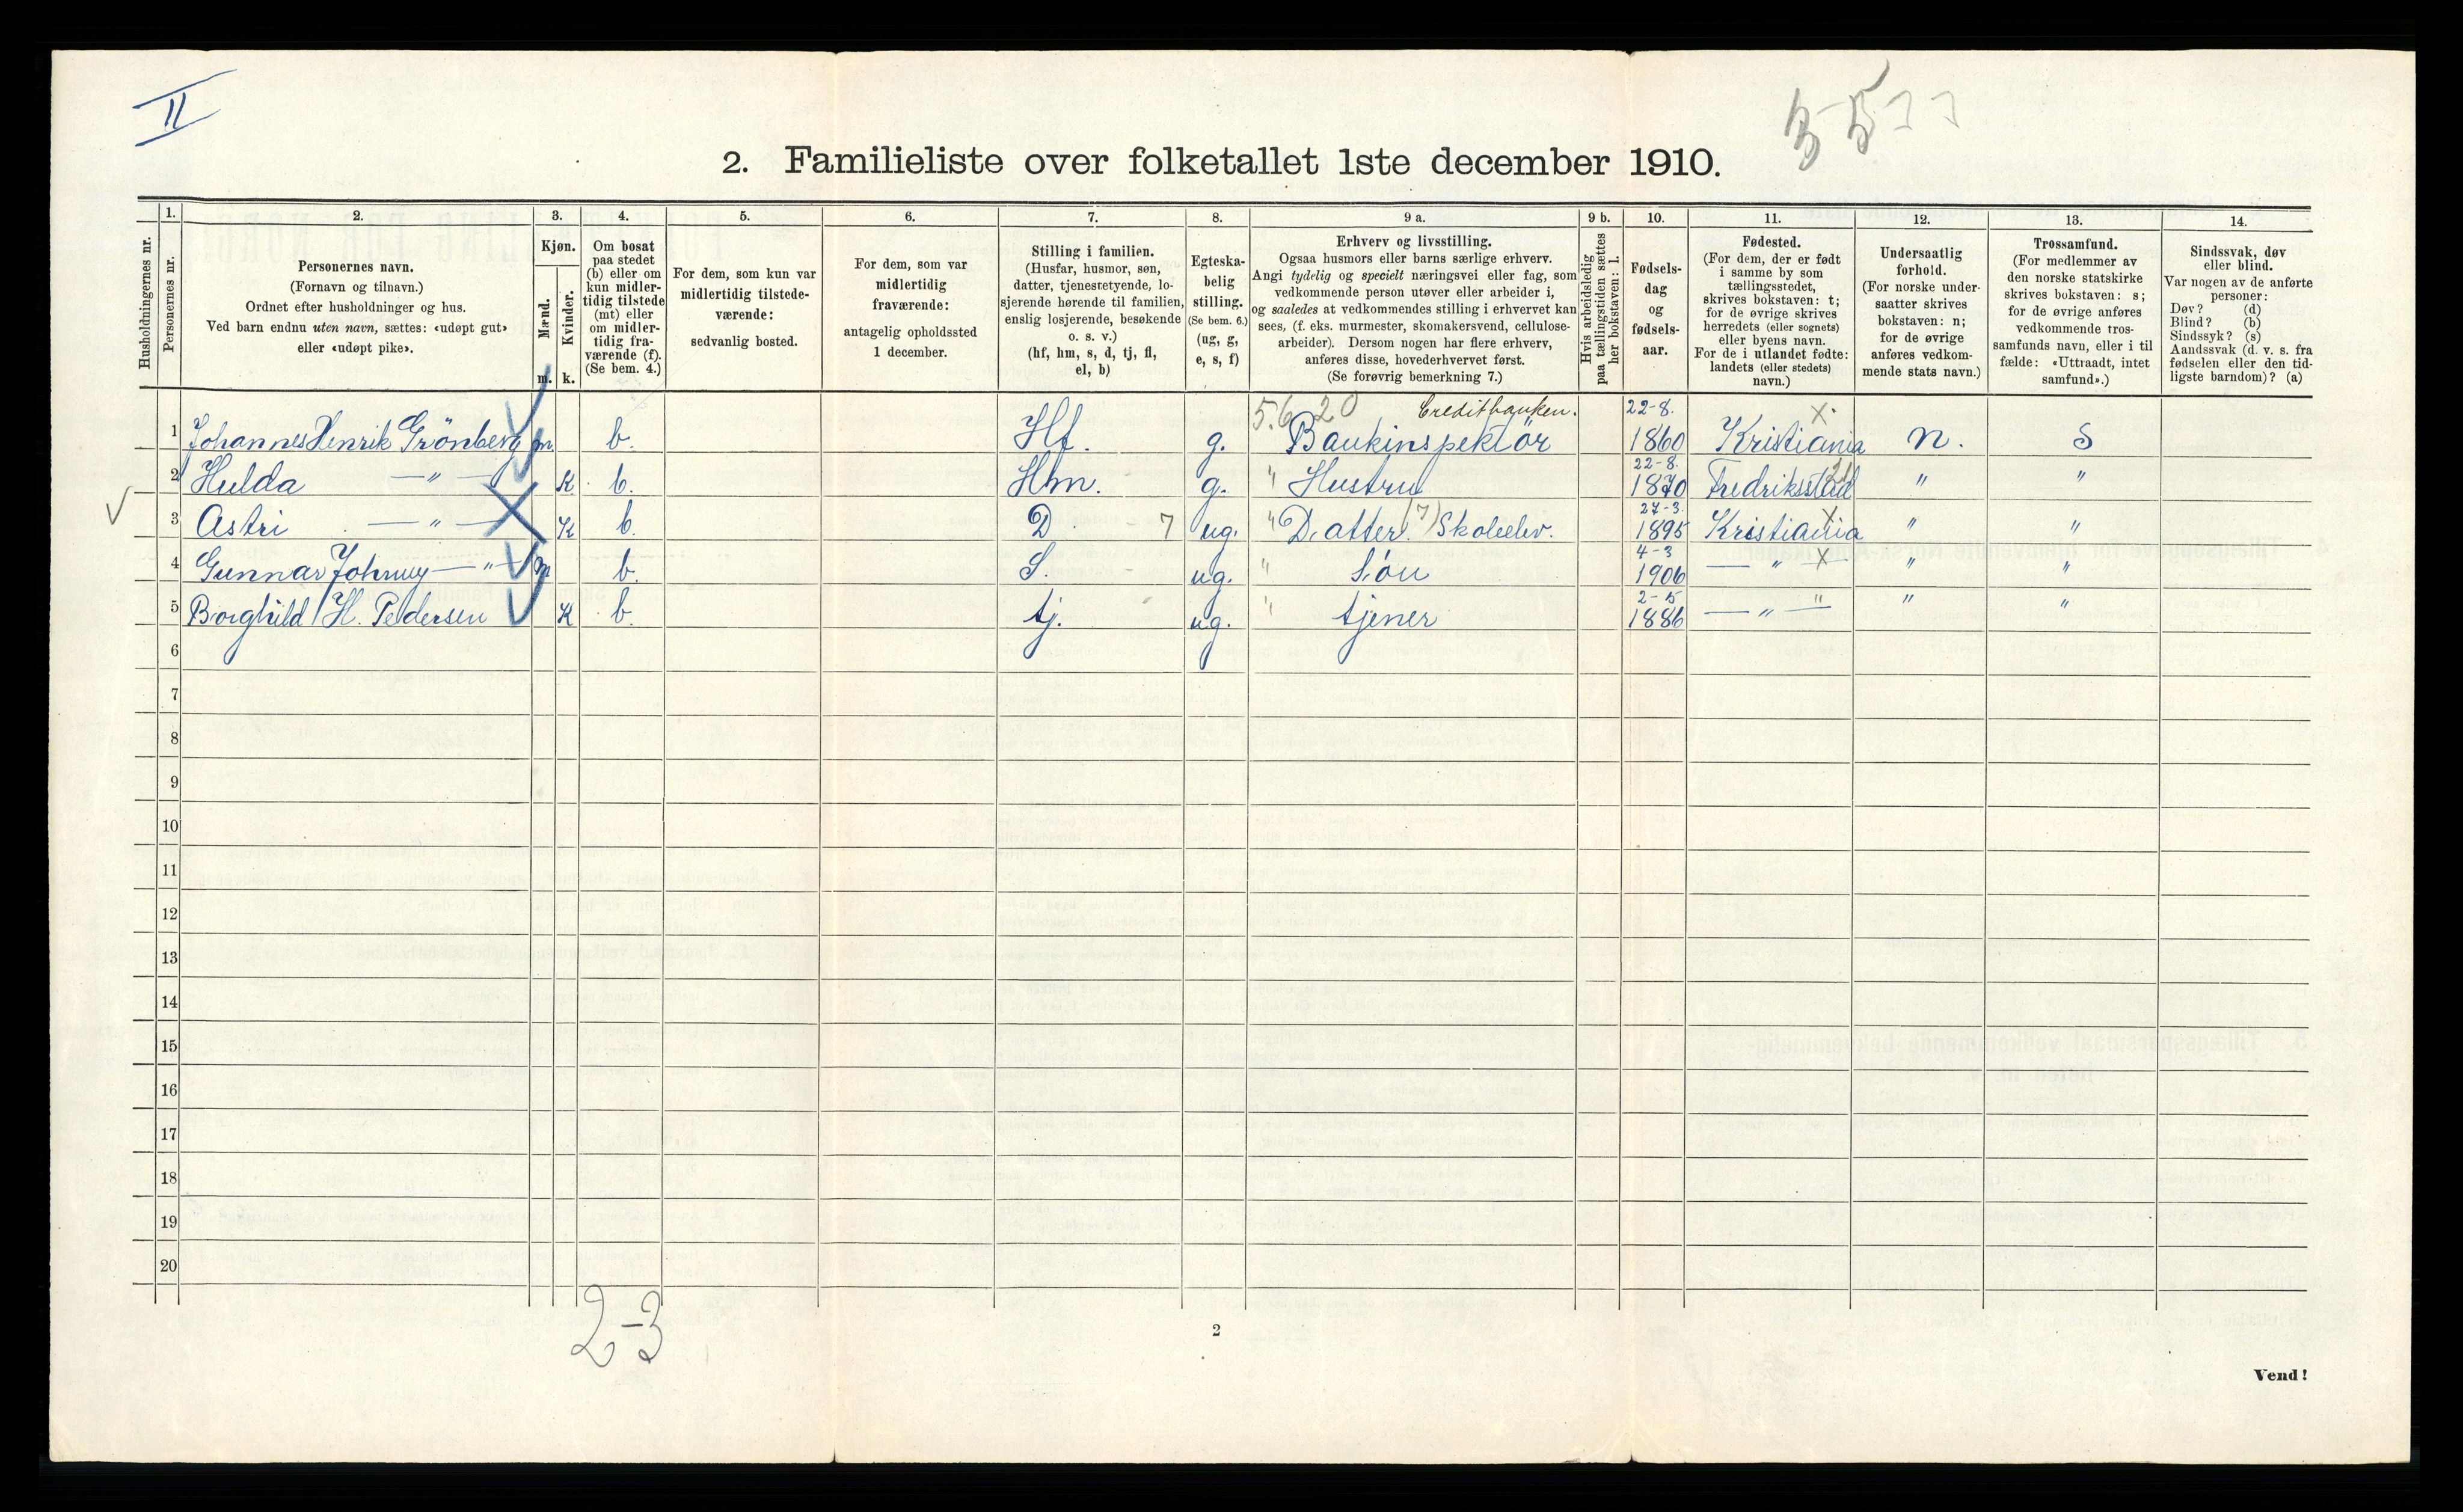 II
3 5
2. Familieliste over folketallet 1ste december 1910.
Husholdningernes nr.
1. Personernes nr.
2. Personernes navn. (Fornavn og tilnavn.) Ordnet efter husholdninger og hus. Ved barn endnu uten navn, sættes: «udøpt gut» eller «udøpt pike».
3. Kjøn. Mænd. m. Kvinder. k.
4. Om bosat paa stedet (b) eller om kun midler-tidig tilstede (mt) eller om midler-tidig fra-værende (f). (Se bem. 4.)
5. For dem, som kun var midlertidig tilstede-værende: sedvanlig bosted.
6. For dem, som var midlertidig fraværende: antagelig opholdssted 1 december.
7. Stilling i familien. (Husfar, husmor, søn, datter, tjenestetyende, lo-sjerende hørende til familien, enslig losjerende, besøkende o. s. v.) (hf, hm, s, d, tj, fl, el, b)
8. Egteska-belig stilling. (Se bem. 6.) (ug, g, e, s, f)
9 a. Erhverv og livsstilling. Ogsaa husmors eller barns særlige erhverv. Angi tydelig og specielt næringsvei eller fag, som vedkommende person utøver eller arbeider i, og saaledes at vedkommendes stilling i erhvervet kan sees, (f. eks. murmester, skomakersvend, cellulose-arbeider). Dersom nogen har flere erhverv, anføres disse, hovederhvervet først. (Se forøvrig bemerkning 7.)
9 b. Hvis arbeidsledig paa tællingstiden sættes her bokstaven: l.
10. Fødsels-dag og fødsels-aar.
11. Fødested. (For dem, der er født i samme by som tællingsstedet, skrives bokstaven: t; for de øvrige skrives herredets (eller sognets) eller byens navn. For de i utlandet fødte: landets (eller stedets) navn.)
12. Undersaatlig forhold. (For norske under-saatter skrives bokstaven: n; for de øvrige anføres vedkom-mende stats navn.)
13. Trossamfund. (For medlemmer av den norske statskirke skrives bokstaven: s; for de øvrige anføres vedkommende tros-samfunds navn, eller i til fælde: «Uttraadt, intet samfund».)
14. Sindssvak, døv eller blind. Var nogen av de anførte personer: Døv? (d) Blind? (b) Sindssyk? (s) Aandssvak (d. v. s. fra fødselen eller den tid-ligste barndom)? (a)
5.6 20 Creditbanken. 22-8. X
1 Johannes Henrik Grönberg m. b. Hf. g. Bankinspektör 1860 Kristiania n. S
2 Hulda —"— K b. Hm. g. " Hustru 22-8. 1870 Fredriksstad " "
3 Astri —"— K b. D 7 ug. " Datter. (7) Skoleelev. 27-3. 1895 Kristiania " "
4 Gunnar Johnny —"— m b. S. ug. " Sön 4-3 1906 —"— " "
5 Borghild H. Pedersen K b. tj. ug. " tjener 2-5 1886 —"— " "
6
7
8
9
10
11
12
13
14
15
16
17
18
19
20
2-3
2
Vend!